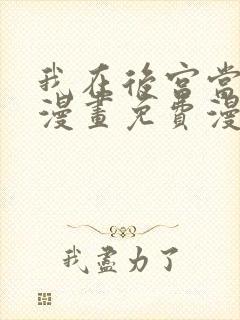 我在後宮當
漫畫免費漫
我盡力了